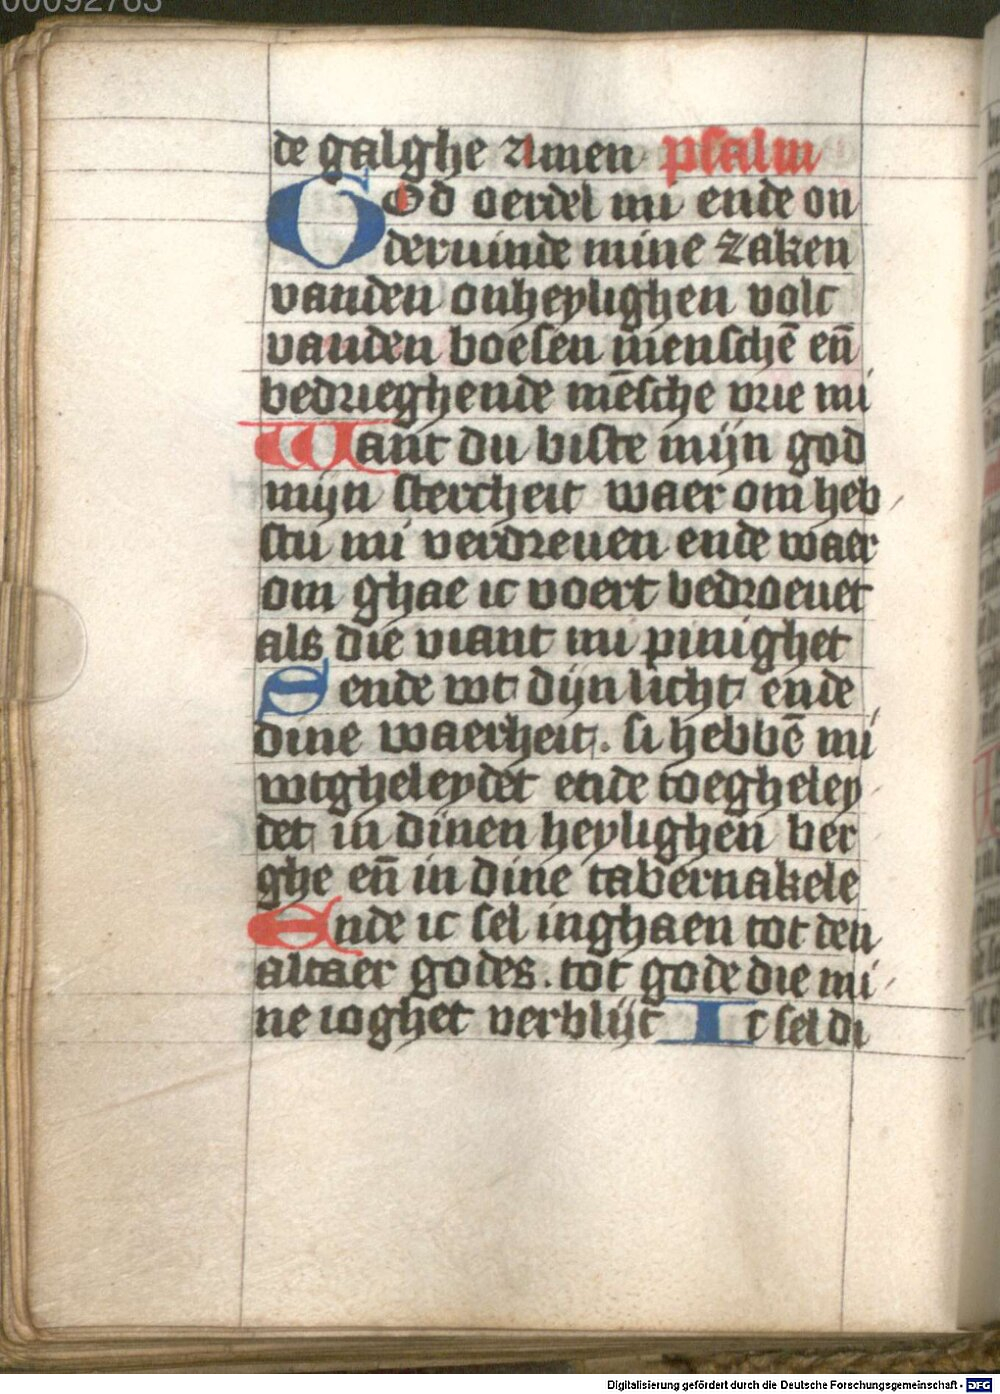 00092763
de galghe Amen psalm
God oerdel mi ende on
deruinde mine zaken
vanden onheylighen volc
vanden boesen menschē en̄
bedrieghende mēsche vrie mi
Want du biste mijn god
mijn stercheit waer om heb
stu mi verdreuen ende waer
om ghae ic voert bedroeuet
als die viant mi pinighet
Sende wt dijn licht ende
dine waerheit. si hebbē mi
wtgheleydet ende toegheley
det in dinen heylighen ber
ghe en̄ in dine tabernakele
Ende ic sel inghaen tot den
altaer godes. tot gode die mi
ne ioghet verblijt Ic sel di
Digitalisierung gefördert durch die Deutsche Forschungsgemeinschaft - DFG